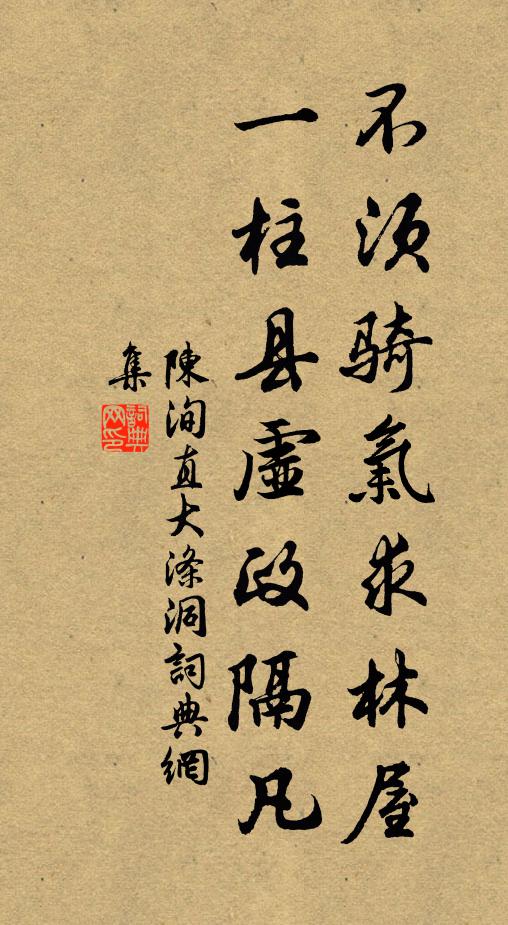 不須騎氣求林屋
一柱县虛政隔凡
陳洵直大滌洞詞典網
集
詞典网印